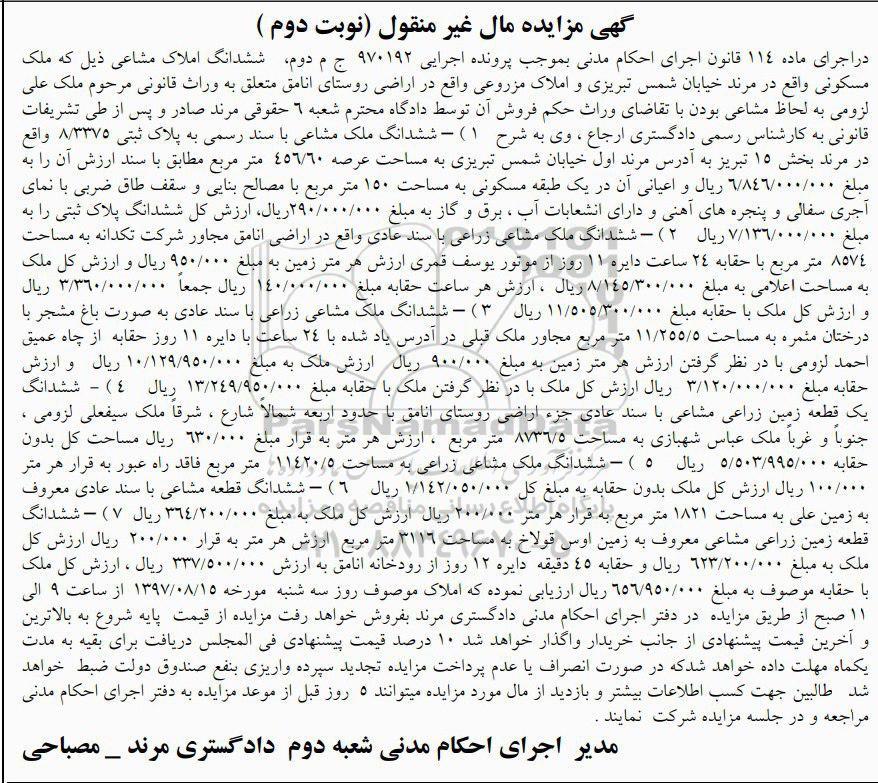 گهی مزایده مال غیر منقول (نوبت دوم )
دراجرای ماده ۱۱۴ قانون اجرای احکام مدنی بموجب پرونده اجرایی ۹۷۰۱۹۲ ج م دوم، ششدانگ املاک مشاعی ذیل که ملک
مسکونی واقع در مرند خیابان شمس تبریزی و املاک مزروعی واقع در اراضی روستای انامق متعلق به وراث قانونی مرحوم ملک علی
لزومی به لحاظ مشاعی بودن با تقاضای وراث حکم فروش آن توسط دادگاه محترم شعبه ۶ حقوقی مرند صادر و پس از طی تشریفات
قانونی به کارشناس رسمی دادگستری ارجاع ، وی به شرح ۱ ) – ششدانگ ملک مشاعی با سند رسمی به پلاک ثبتی ۸/۳۳۷۵ واقع
در مرند بخش ۱۵ تبریز به آدرس مرند اول خیابان شمس تبریزی به مساحت عرصه ۴۵۶/۶۰ متر مربع مطابق با سند ارزش آن را به
مبلغ ۶/۸۴۶/۰۰۰/۰۰۰ ریال و اعیانی آن در یک طبقه مسکونی به مساحت ۱۵۰ متر مربع با مصالح بنایی و سقف طاق ضربی با نمای
آجری سفالی و پنجره های آهنی و دارای انشعابات آب ، برق و گاز به مبلغ ۲۹۰/۰۰۰/۰۰۰ریال، ارزش کل ششدانگ پلاک ثبتی را به
مبلغ ۷/۱۳۶/۰۰۰/۰۰۰ ریال ۲ ) – ششدانگ ملک مشاعی زراعی با سند عادی واقع در اراضی انامق مجاور شرکت تکدانه به مساحت
۸۵۷۴ متر مربع با حقابه ۲۴ ساعت دایره ۱۱ روز از موتور یوسف قمری ارزش هر متر زمین به مبلغ ۹۵۰/۰۰۰ ریال و ارزش کل ملک
به مساحت اعلامی به مبلغ ۸/۱۴۵/۳۰۰/۰۰۰ ریال ، ارزش هر ساعت حقابه مبلغ ۱۴۰/۰۰۰/۰۰۰ ریال جمعاً ۳/۳۶۰/۰۰۰/۰۰۰ ریال
و ارزش کل ملک با حقابه مبلغ ۱۱/۵۰۵/۳۰۰/۰۰۰ ریال ۳ ) – ششدانگ ملک مشاعی زراعی با سند عادی به صورت باغ مشجر با
درختان مثمره به مساحت ۱۱/۲۵۵/۵ متر مربع مجاور ملک قبلی در آدرس یاد شده با ۲۴ ساعت با دایره ۱۱ روز حقابه از چاه عمیق
احمد لزومی با در نظر گرفتن ارزش هر متر زمین به مبلغ ۹۰۰/۰۰۰ ریال ارزش ملک به مبلغ ۱۰/۱۲۹/۹۵۰/۰۰۰ ریال و ارزش
حقابه مبلغ ۳/۱۲۰/۰۰۰/۰۰۰ ریال ارزش کل ملک با در نظر گرفتن ملک با حقابه مبلغ ۱۳/۲۴۹/۹۵۰/۰۰۰ ریال ۴ ) - ششدانگ
یک قطعه زمین زراعی مشاعی با سند عادی جزء اراضی روستای انامق با حدود اربعه شمالاً شارع ، شرقاً ملک سیفعلی لزومی ،
جنوباً و غرباً ملک عباس شهبازی به مساحت ۸۷۳۶/۵ متر مربع ، ارزش هر متر به قرار مبلغ ۶۳۰/۰۰۰ ریال مساحت کل بدون
حقابه ۵/۵۰۳/۹۹۵/۰۰۰ ریال ۵ ) – ششدانگ ملک مشاعی زراعی به مساحت ۱۱۴۲۰/۵ متر مربع فاقد راه عبور به قرار هر متر
۱۰۰/۰۰۰ ریال ارزش کل ملک بدون حقابه به مبلغ کل ۱/۱۴۲/۰۵۰/۰۰۰ ریال ۶ ) – ششدانگ قطعه مشاعی با سند عادی معروف
به زمین علی به مساحت ۱۸۲۱ متر مربع به قرار هر متر ۲۰۰/۰۰۰ ریال ارزش کل ملک به مبلغ ۳۶۴/۲۰۰/۰۰۰ ریال ۷ ) – ششدانگ
قطعه زمین زراعی مشاعی معروف به زمین اوس قولاخ به مساحت ۳۱۱۶ متر مربع ارزش هر متر به قرار ۲۰۰/۰۰۰ ریال ارزش کل
ملک به مبلغ ۶۲۳/۲۰۰/۰۰۰ ریال و حقابه ۴۵ دقیقه دایره ۱۲ روز از رودخانه انامق به ارزش ۳۳۷/۵۰۰/۰۰۰ ریال ، ارزش کل ملک
با حقابه موصوف به مبلغ ۶۵۶/۹۵۰/۰۰۰ ریال ارزیابی نموده که املاک موصوف روز سه شنبه مورخه ۱۳۹۷/۰۸/۱۵ از ساعت ۹ الی
۱۱ صبح از طریق مزایده در دفتر اجرای احکام مدنی دادگستری مرند بفروش خواهد رفت مزایده از قیمت پایه شروع به بالاترین
و آخرین قیمت پیشنهادی از جانب خریدار واگذار خواهد شد ۱۰ درصد قیمت پیشنهادی فی المجلس دریافت برای بقیه به مدت
یکماه مهلت داده خواهد شدکه در صورت انصراف یا عدم پرداخت مزایده تجدید سپرده واریزی بنفع صندوق دولت ضبط خواهد
شد طالبین جهت کسب اطلاعات بیشتر و بازدید از مال مورد مزایده میتوانند ۵ روز قبل از موعد مزایده به دفتر اجرای احکام مدنی
مراجعه و در جلسه مزایده شرکت نمایند .
مدیر اجرای احکام مدنی شعبه دوم دادگستری مرند _ مصباحی
ParsNamadData
پایگاه اطلاع رسانی مناقصه و مزایده